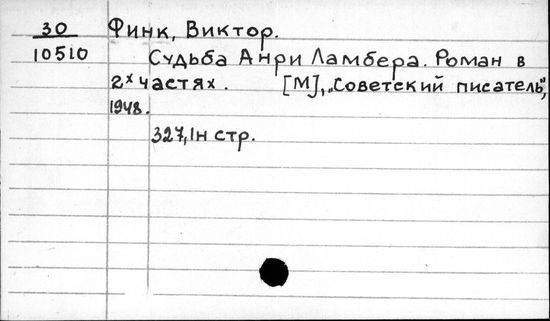 30 Финк, Виктор.
10510 Судьба Анри Ламбера. Роман в
2х частях. [М], „Советский писатель",
1948.
327, 1н стр.